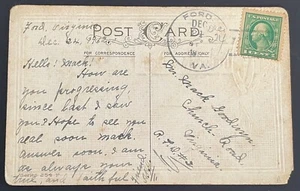 Ford, Virginia
Dec. 24, 19
POST CARD
FOR CORRESPONDENCE
FORD
DEC
VA.
Hello! Mack:
How are
you progressing,
since last I saw
you? Hope to see you
real soon Mack.
Answer soon. I am
as always your
faithful
Mr. Mack
Church Road
Virginia